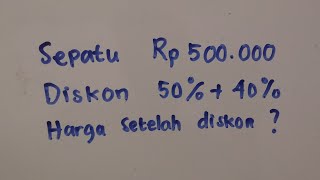 Sepatu Rp 500.000
Diskon 50% + 40%
Harga setelah diskon ?